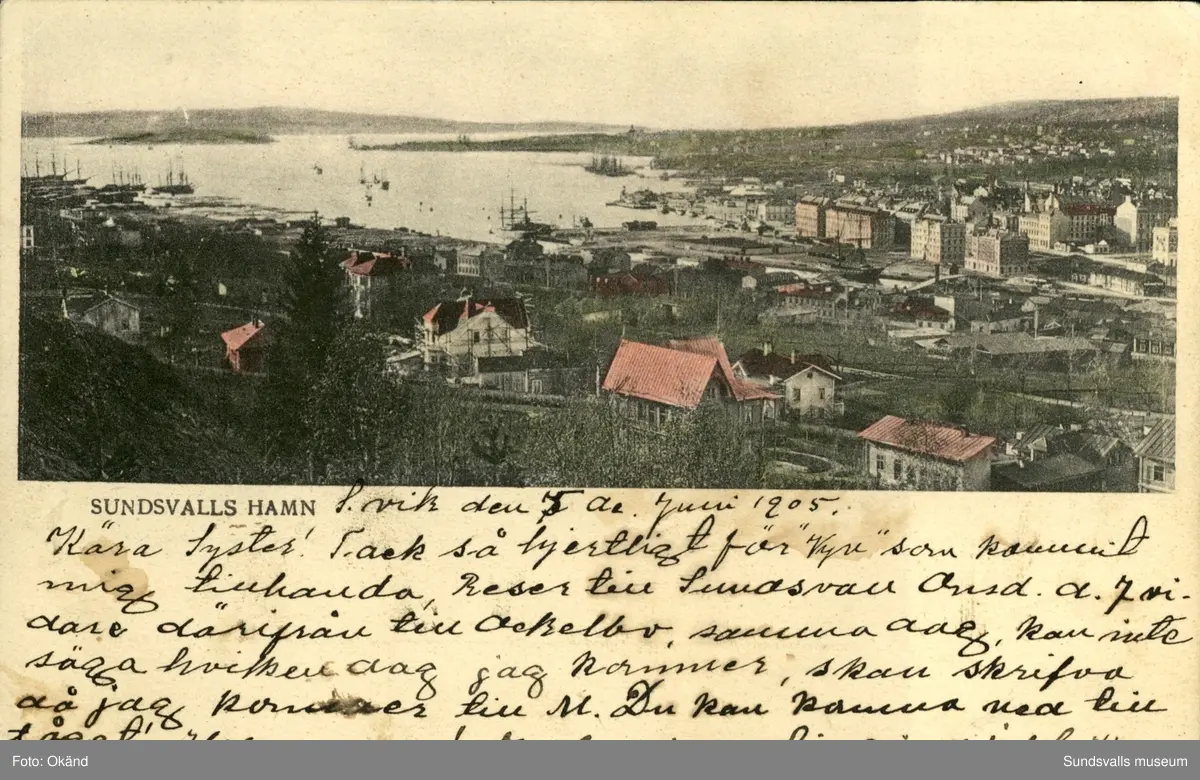 SUNDSVALLS HAMN S.vik den 5 de. Juni 1905.
Kära Syster! Tack så hjertligt för "Vyn" som kommit
mig tillhanda, Reser till Sundsvall Onsd. d. 7 vi-
dare därifrån till Ockelbo, samma dag, kan inte
säga hvilken dag jag kommer, skall skrifva
då jag kommer till M. Du kan komma ned till
tåget!
Foto: Okänd
Sundsvalls museum